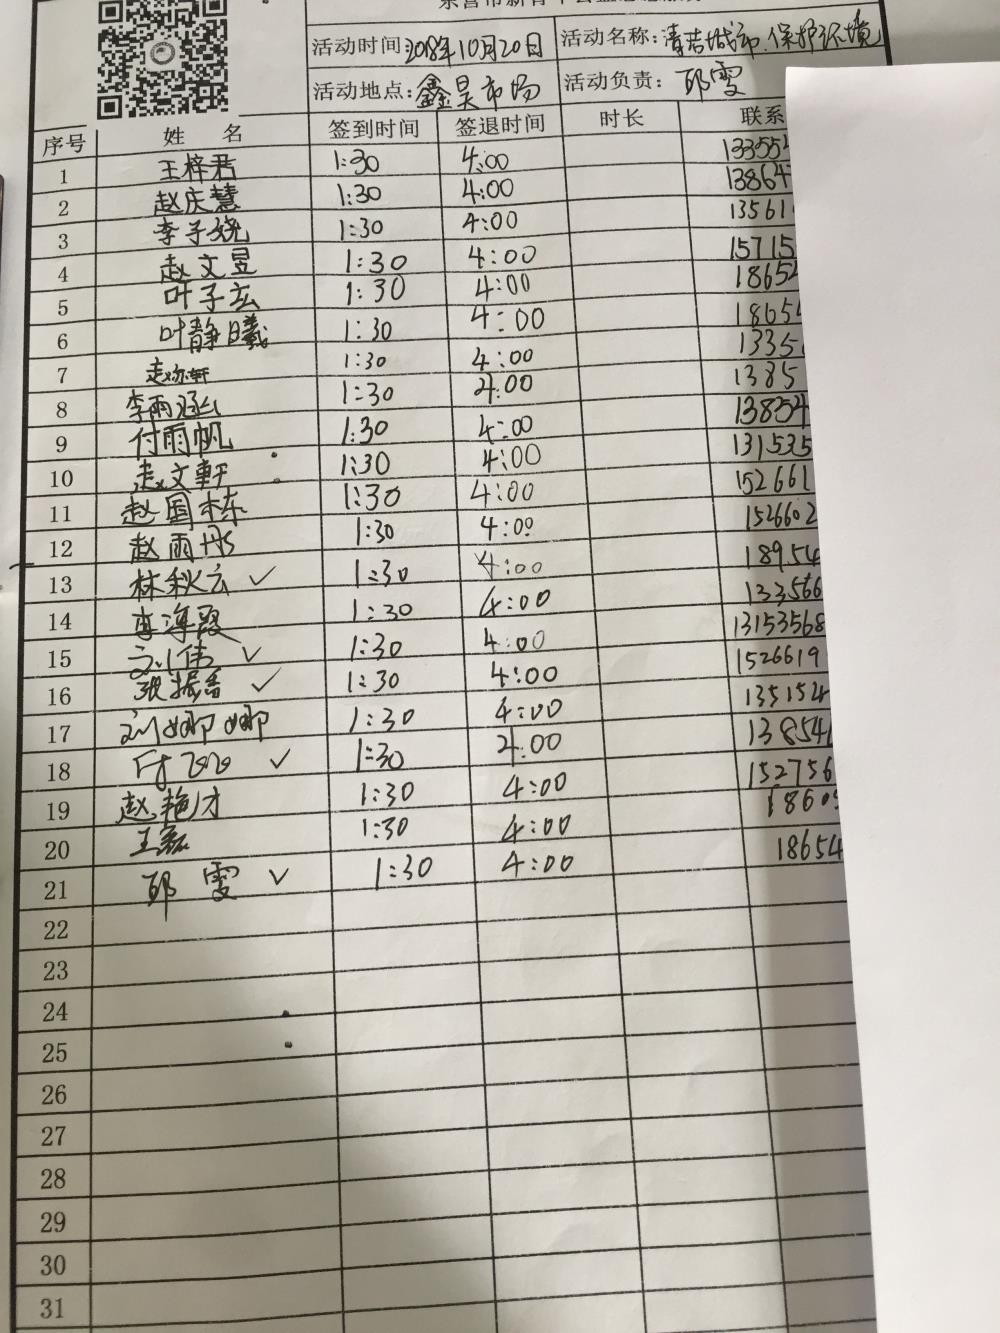 活动时间:2018年10月20日 活动名称:清洁城市、保护环境
活动地点:鑫昊市场 活动负责:邱雯
序号 姓 名 签到时间 签退时间 时长 联系
1 王梓君 1:30 4:00 13355
2 赵庆慧 1:30 4:00 13864
3 李子晓 1:30 4:00 13561
4 赵文昱 1:30 4:00 15715
5 叶子玄 1:30 4:00 18654
6 叶静曦 1:30 4:00 18654
7 1:30 4:00 1335
8 李雨涵 1:30 4:00 1385
9 付雨帆 1:30 4:00 13854
10 赵文軒 1:30 4:00 131535
11 赵国栋 1:30 4:00 152661
12 赵雨彤 1:30 4:00 1526602
13 林秋云 ✓ 1:30 4:00 18954
14 李海霞 1:30 4:00 133566
15 刘伟 ✓ 1:30 4:00 13153568
16 张振香 ✓ 1:30 4:00 1526619
17 刘娜娜 1:30 4:00 135154
18 ✓ 1:30 4:00 13854
19 赵艳才 1:30 4:00 152756
20 王磊 1:30 4:00 18605
21 邱雯 ✓ 1:30 4:00 18654
22
23
24
25
26
27
28
29
30
31